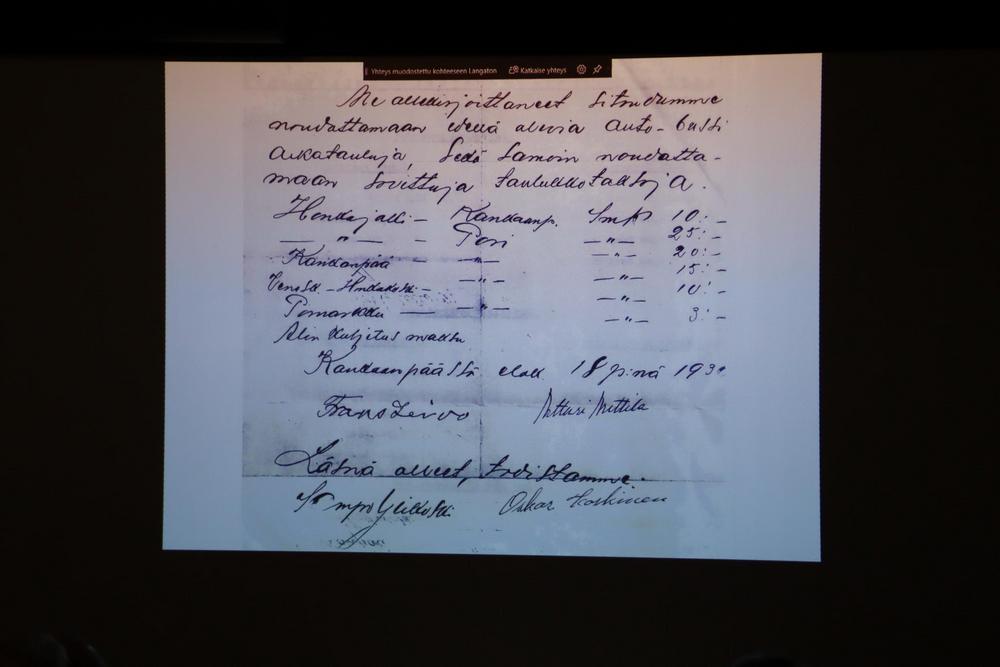 Yhteys muodostettu kohteeseen Langaton Katkaise yhteys
Me allekirjoittaneet sitoudumme
noudattamaan edellä olevia auto-bussi
aikatauluja, Sekä Samoin noudatta-
maan sovittuja taulukko taksoja.
Honkajolki — Kankaanp. Smk 10:-
— " — - Pori — " — 25:-
Kankanpää — " — — " — 20:-
— " — — " — 15:-
— " — — " — 10:-
Pomarkku — — " — 3:-
Alin kuljetus maksu
Kankaanpäässä elok. 18 p:nä 193
Frans Leivo Mittilä
Läsnä olleet, todistamme.
Oskar Koskinen